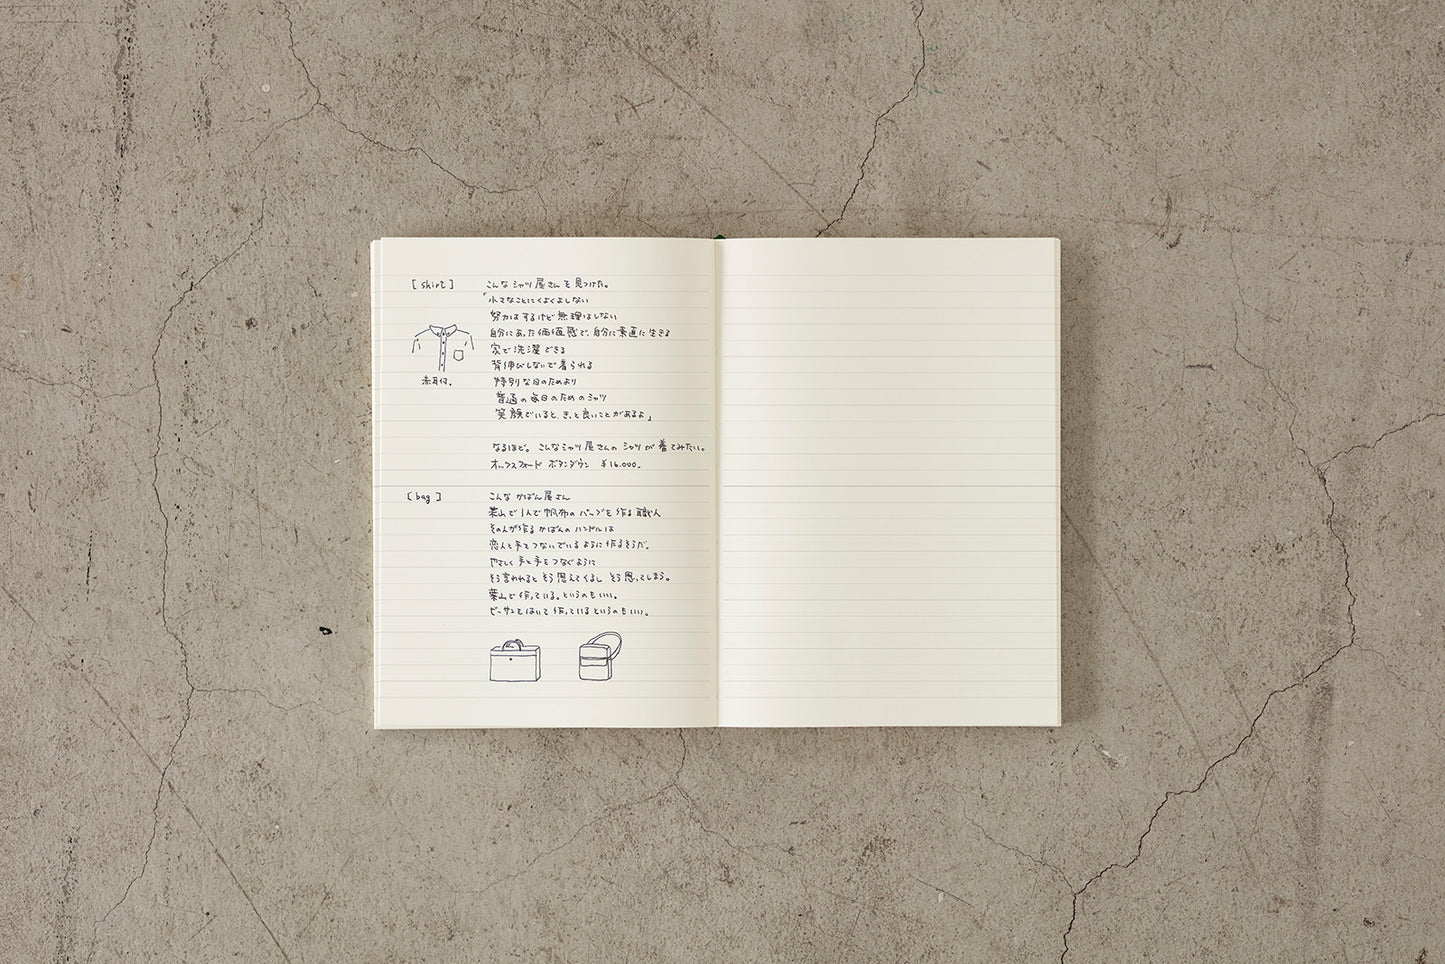 [shirt]
こんなシャツ屋さんを見つけた。
「小さなことにくよくよしない
努力はするけど無理はしない
自分にあった価値感で、自分に素直に生きる
家で洗濯できる
背伸びしないで着られる
赤耳付。
特別な日のためより
普通の毎日のためのシャツ
笑顔でいると、きっと良いことがあるよ」
なるほど。こんなシャツ屋さんのシャツが着てみたい。
オックスフォード ボタンダウン ¥16.000.
[bag]
こんなかばん屋さん
葉山で1人で帆布のバッグを作る職人
その人が作るかばんのハンドルは
恋人と手をつないでいるように作るそうだ。
やさしく手と手をつなぐように
そう言われるとそう思えてくるし そう思ってしまう。
葉山で作っている。というのもいい。
ビーサンをはいて作っているというのもいい。